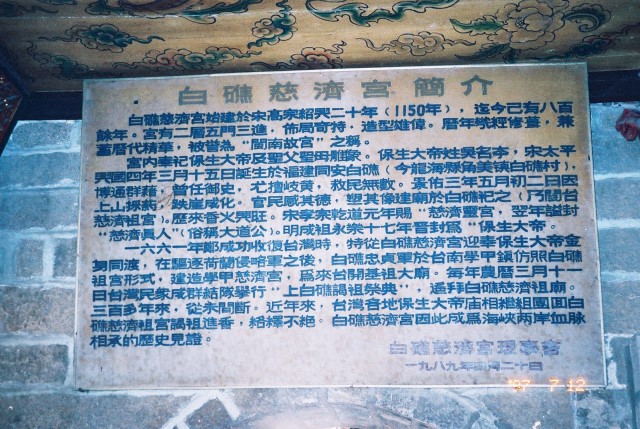 白礁慈濟宮簡介
白礁慈濟宮始建於宋高宗紹興二十年（1150年），迄今已有八百
餘年。宮有二層五門三進，佈局奇特，造型雄偉。曆年幾經修葺，兼
蓄曆代精華，被譽為“閩南故宮”之稱。
宮内奉祀保生大帝及聖父聖母雕象。保生大帝姓吳名夲，宋太平
興國四年三月十五日誕生於福建同安白礁（今龍海縣角美鎮白礁村），
博通群籍，曾任御史，尤擅岐黄，救民無數。景佑三年五月初二日因
上山採葯，跌崖咸化，官民感其德，塑其像建廟於白礁祀之（乃閩台
慈濟祖宮）。歷來香火興旺。宋孝宗乾道元年賜“慈濟靈宮，翌年謚封
“慈濟真人”（俗稱大道公）。明成祖永樂十七年晋封為“保生大帝。
一六六一年鄭成功收復台灣時，特從白礁慈濟宮迎奉保生大帝金
身同渡，在驅逐荷蘭侵略軍之後，白礁忠貞軍於台南學甲鎮仿照白礁
祖宮形式，建造學甲慈濟宮，為來台開基祖大廟。每年農曆三月十一
日台灣民衆咸群結隊擧行“上白礁謁祖祭典”，遙拜白礁慈濟祖廟。
三百多年來，從未間斷。近年來，台灣各地保生大帝庙相繼組團回白
礁慈濟祖宮謁祖進香，絡繹不絕。白礁慈濟宮因此成爲海峽两岸血脉
相承的歷史見證。
白礁慈濟宮理事會
一九八九年 月二十日
'97 7 12